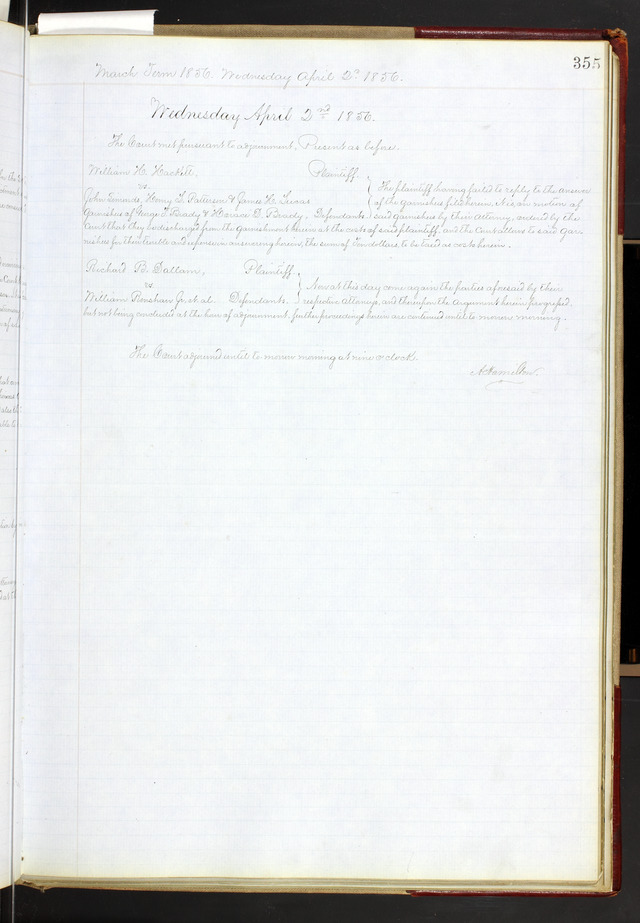 355
March Term 1856. Wednesday April 2d 1856.
Wednesday April 2nd 1856.
The Court met pursuant to adjournment, Present as before.
William H. Hackett, Plaintiff
vs
The plaintiff having failed to reply to the answer
John Simonds, Henry L. Patterson & James H. Lucas of the garnishees filed herein. It is on motion of
Garnishees of George T. Brady & Horace D. Brady. Defendants. said garnishees by their attorney, ordered by the
Court that they be discharged from the garnishment herein at the costs of said plaintiff, and the Court allows to said Gar
nishees for their trouble and expenses in answering herein, the sum of Ten dollars to be taxed as costs herein.
Richard B. Dallam, Plaintiff
vs
Now at this day come again the parties aforesaid by their
William Renshaw Jr. et al. Defendants. respective attorneys, and thereupon the argument herein progressed,
but not being concluded at the hour of adjournment, further proceedings herein are continued until to morrow morning.
The Court adjourned until to morrow morning at nine o'clock.
A. Hamilton.